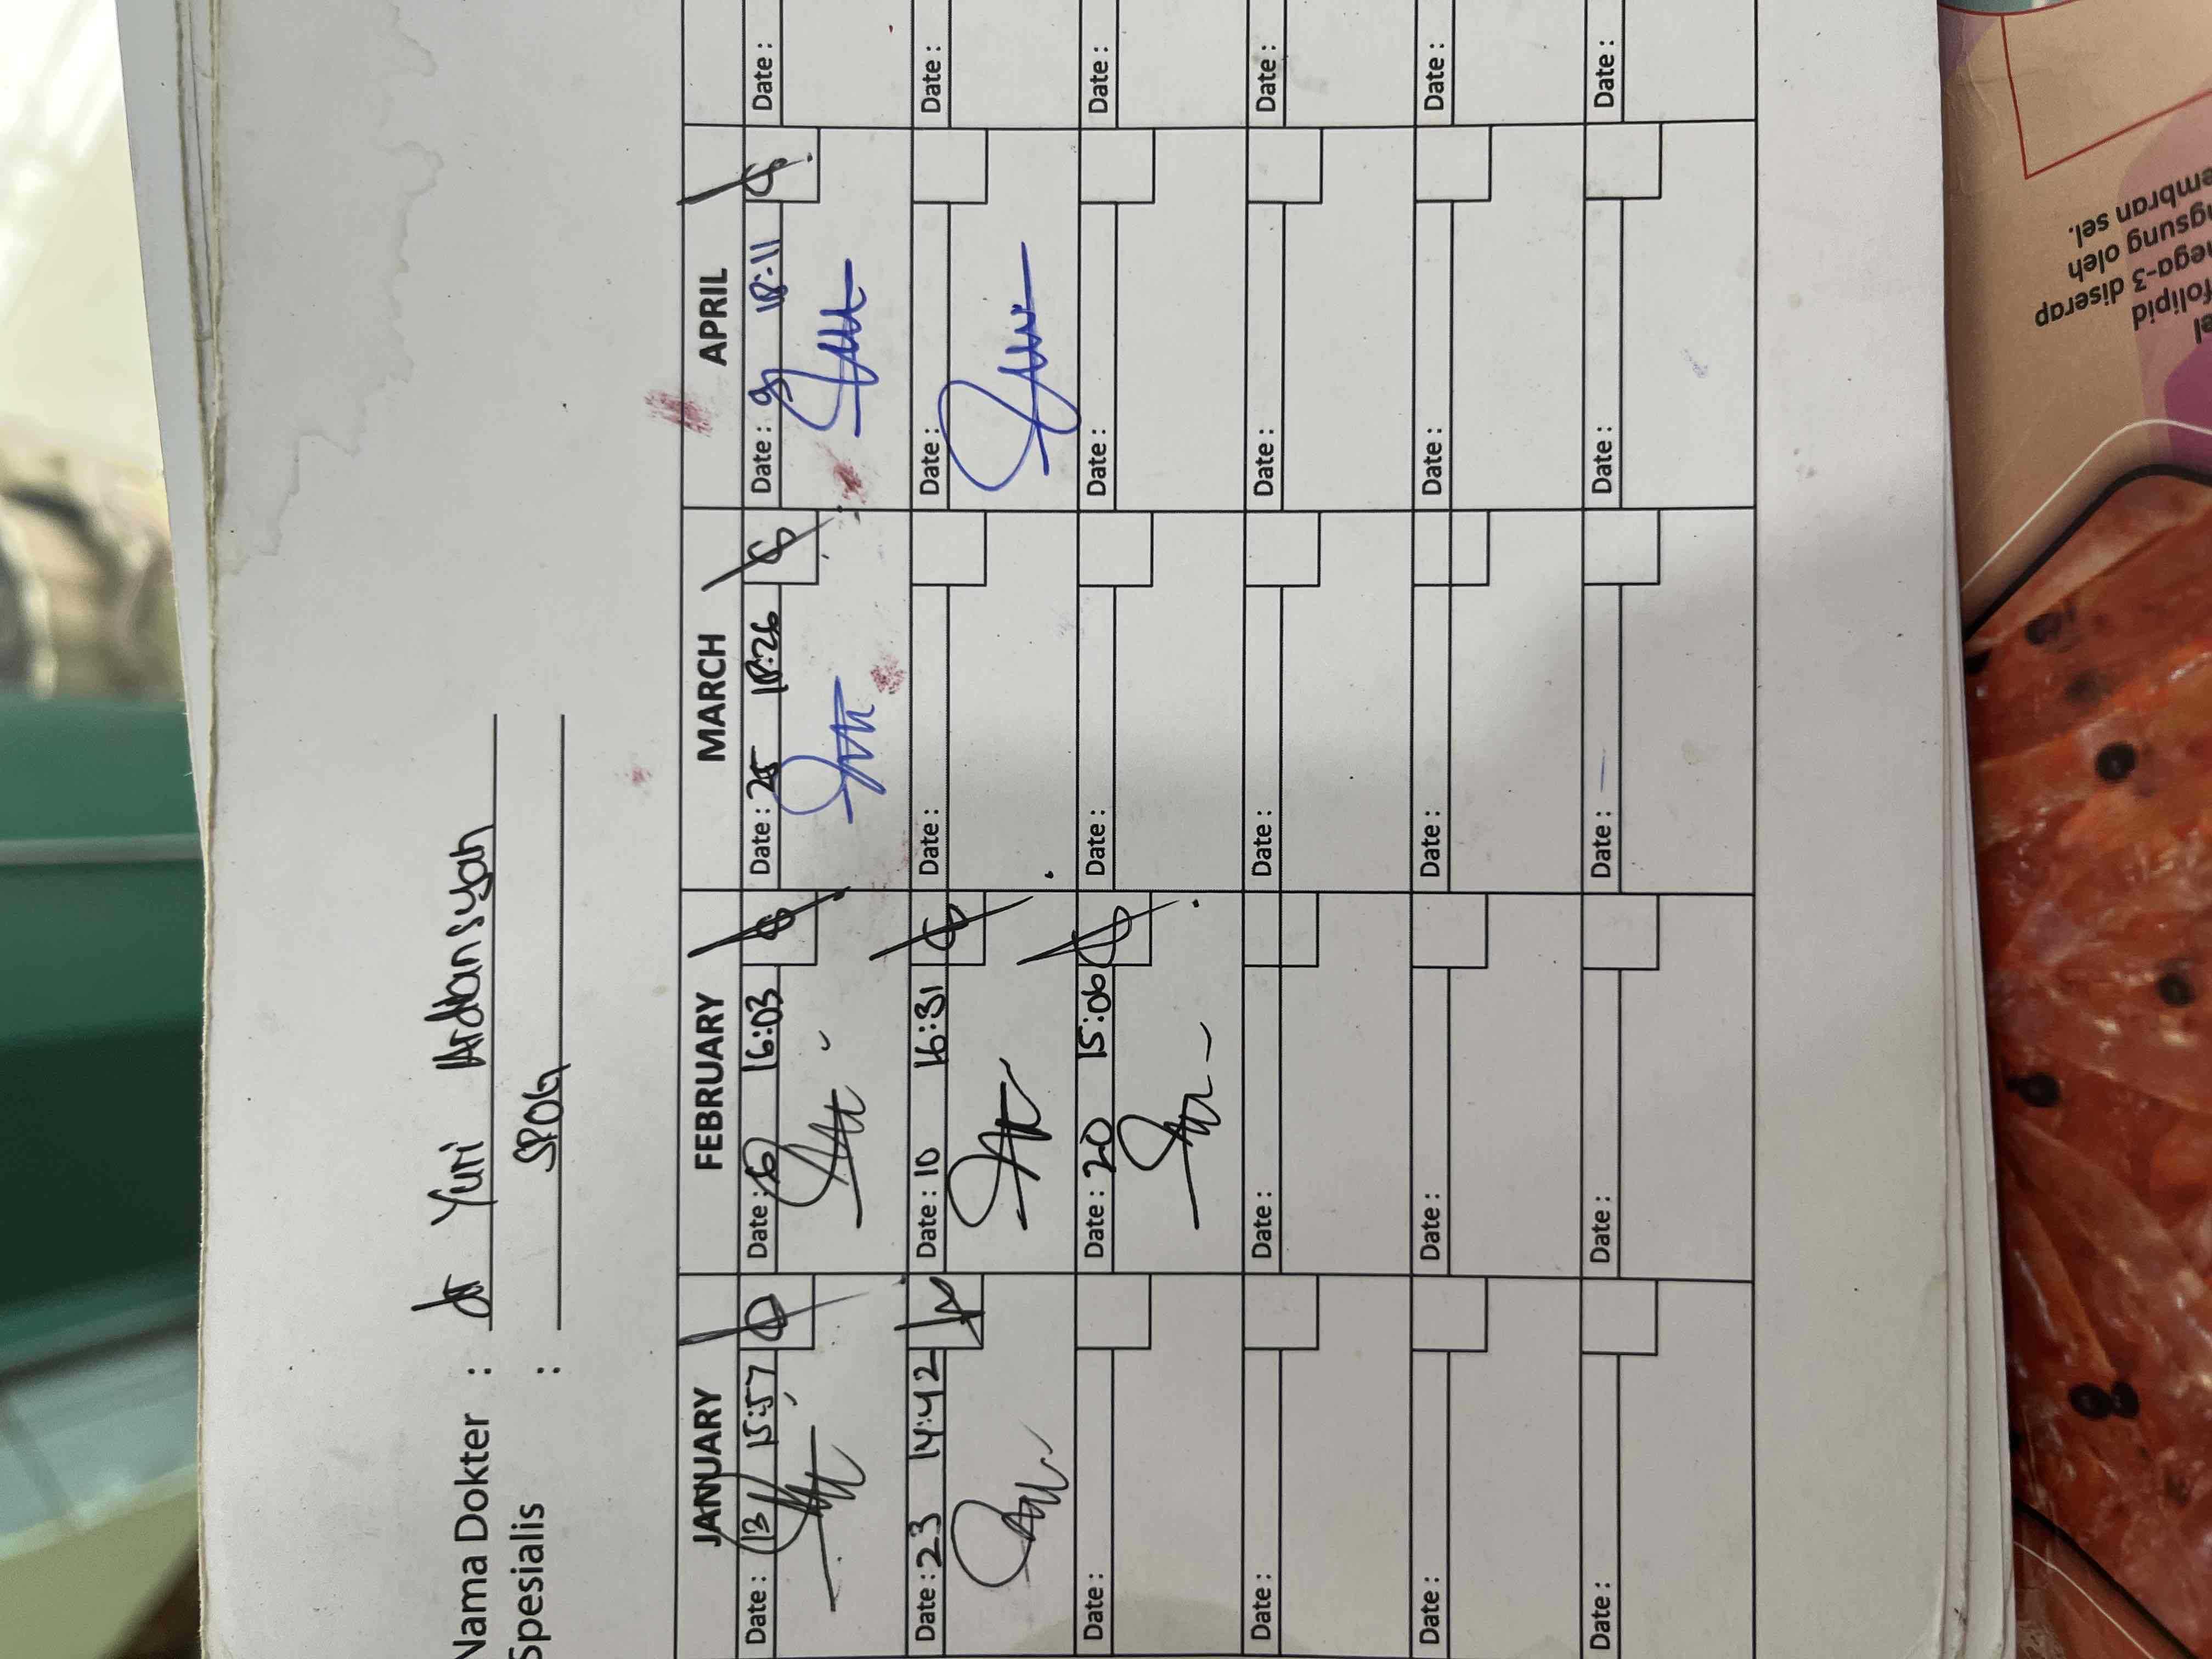 Nama Dokter : dr Yuri Arddansyah
Spesialis : SPOG
JANUARY FEBRUARY MARCH APRIL
Date : 13 15:57 Date : 6 16:03 Date : 25 18:26 Date : 9 18:11 Date :
Date : 23 14:42 Date : 10 16:31 Date : Date : Date :
Date : Date : 20 15:06 Date : Date : Date :
Date : Date : Date : Date : Date :
Date : Date : Date : Date : Date :
Date : Date : Date : Date : Date :
folipid
ega-3 diserap
gsung oleh
embran sel.